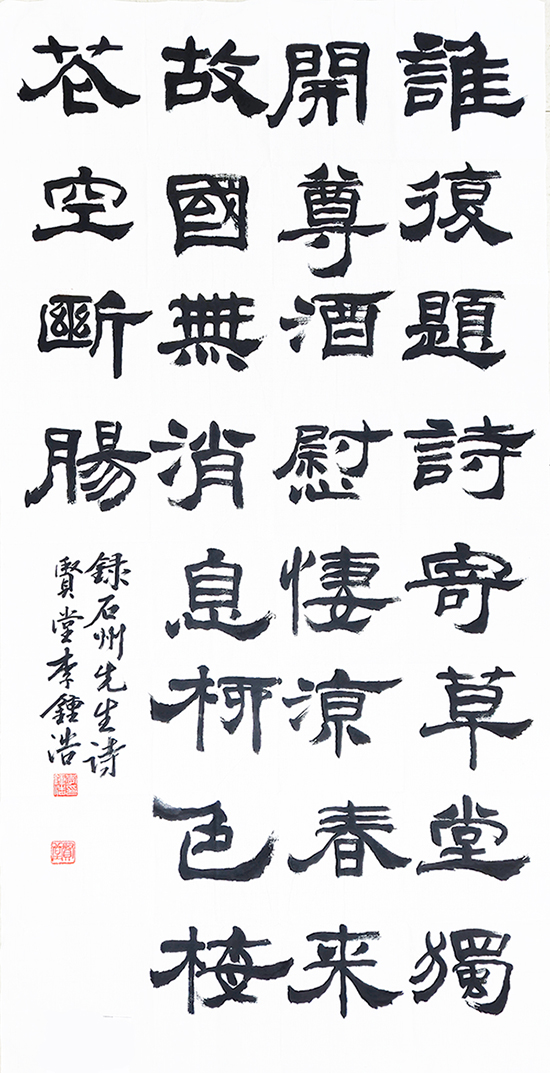 誰復題詩寄草堂獨
開尊酒慰悽涼春來
故國無消息柳色梅
花空斷腸
錄石州先生詩
賢堂李鍾浩